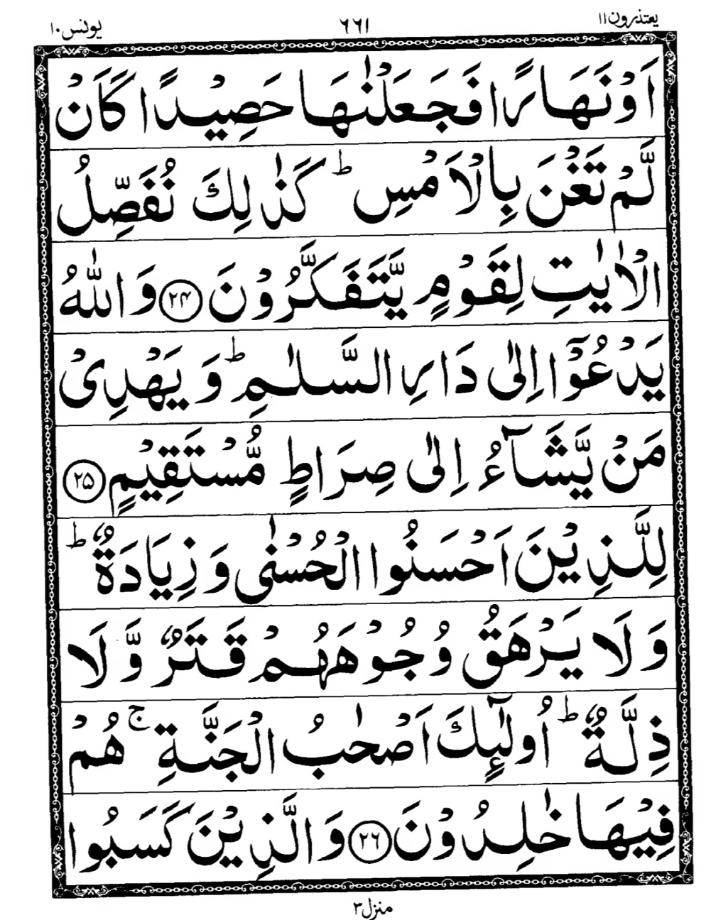 یعتذرون ۱۱ ۶۶۱ یونس ۱۰
اَوْ نَهَارًا فَجَعَلْنٰهَا حَصِیْدًا كَاَنْ
لَّمْ تَغْنَ بِالْاَمْسِ ؕ كَذٰلِكَ نُفَصِّلُ
الْاٰیٰتِ لِقَوْمٍ یَّتَفَكَّرُوْنَ ﴿۲۴﴾ وَ اللّٰهُ
یَدْعُوْۤا اِلٰی دَارِ السَّلٰمِ ؕ وَ یَهْدِیْ
مَنْ یَّشَآءُ اِلٰی صِرَاطٍ مُّسْتَقِیْمٍ ﴿۲۵﴾
لِلَّذِیْنَ اَحْسَنُوا الْحُسْنٰی وَ زِیَادَةٌ ؕ
وَ لَا یَرْهَقُ وُجُوْهَهُمْ قَتَرٌ وَّ لَا
ذِلَّةٌ ؕ اُولٰٓىِٕكَ اَصْحٰبُ الْجَنَّةِ ۚ هُمْ
فِیْهَا خٰلِدُوْنَ ﴿۲۶﴾ وَ الَّذِیْنَ كَسَبُوا
منزل ۳